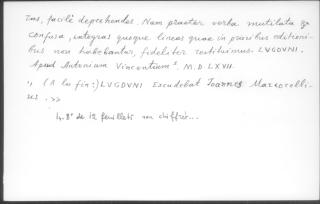 mus, facilè deprehendes. Nam praeter verba mutilata &
confusa, integras quoque lineas quae in prioribus editioni-
bus non habebantur, fideliter restituimus. LVGDVNI.
Apud Antonium Vincentium. M.D.LXVII.
,, (A la fin:) LVGDVNI Excudebat Joannes Marcorelli-
us. >>
4. 8° de 12 feuillets non chiffrés...